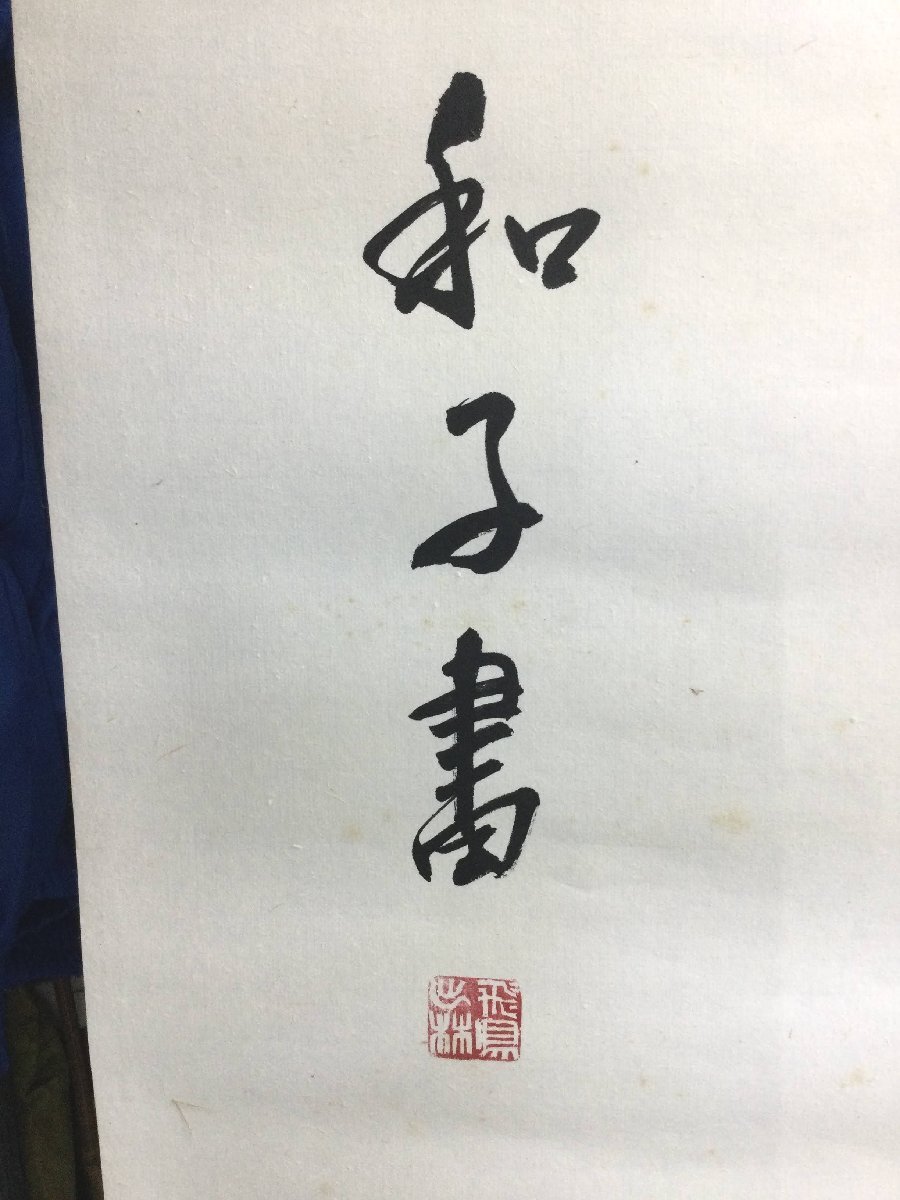 和子書